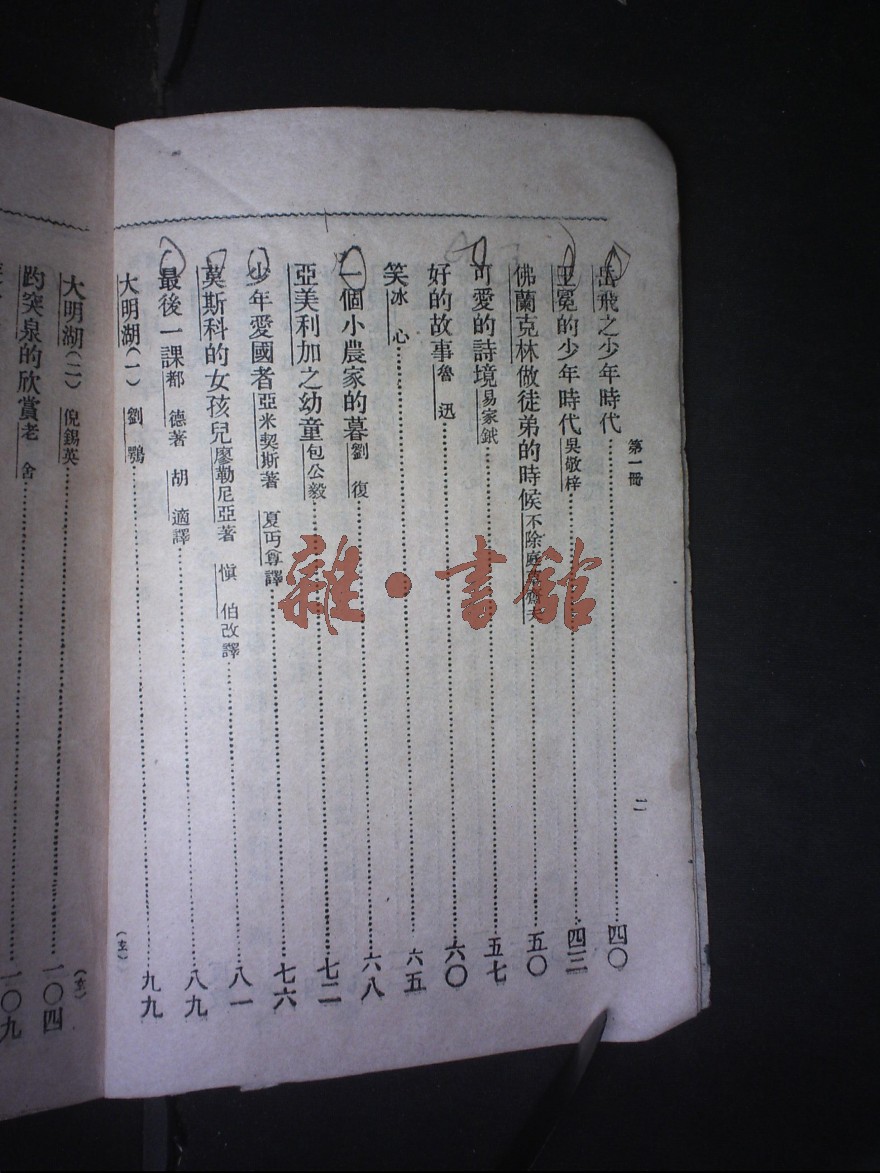 第一冊
二
岳飛之少年時代……四〇
王冕的少年時代 吳敬梓……四三
佛蘭克林做徒弟的時候 不除庭草齋夫……五〇
可愛的詩境 易家鉞……五七
好的故事 魯迅……六〇
笑 冰心……六五
一個小農家的暮 劉復……六八
亞美利加之幼童 包公毅……七二
少年愛國者 亞米契斯著 夏丏尊譯……七六
莫斯科的女孩兒 廖勒尼亞著 愼伯改譯……八一
最後一課 都德著 胡適譯……八九
大明湖(一) 劉鶚……九九
大明湖(二) 倪錫英……一〇四
趵突泉的欣賞 老舍……一〇九
雜·書館